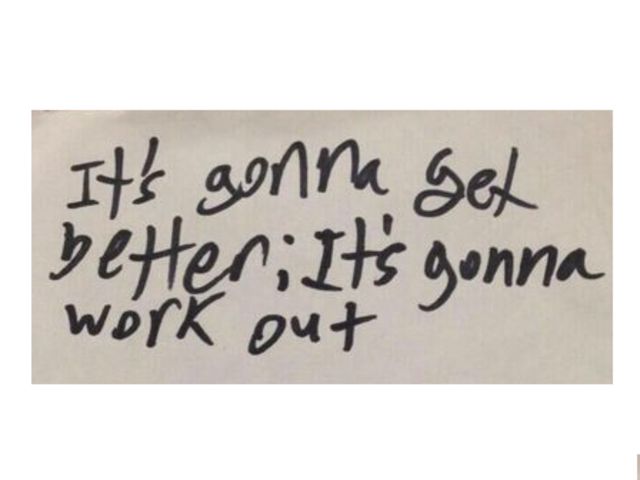 It's gonna get
better; It's gonna
work out